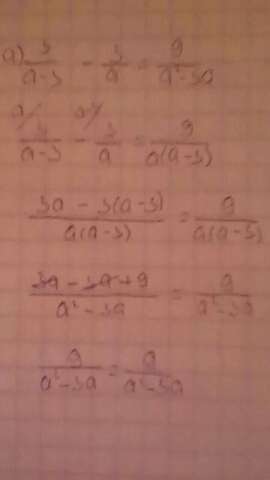 а) 3/(a-3) - 3/a = 9/(a²-3a)
a/ a-3/
3/(a-3) - 3/a = 9/(a(a-3))
(3a - 3(a-3))/(a(a-3)) = 9/(a(a-3))
(3a - 3a + 9)/(a²-3a) = 9/(a²-3a)
9/(a²-3a) = 9/(a²-3a)